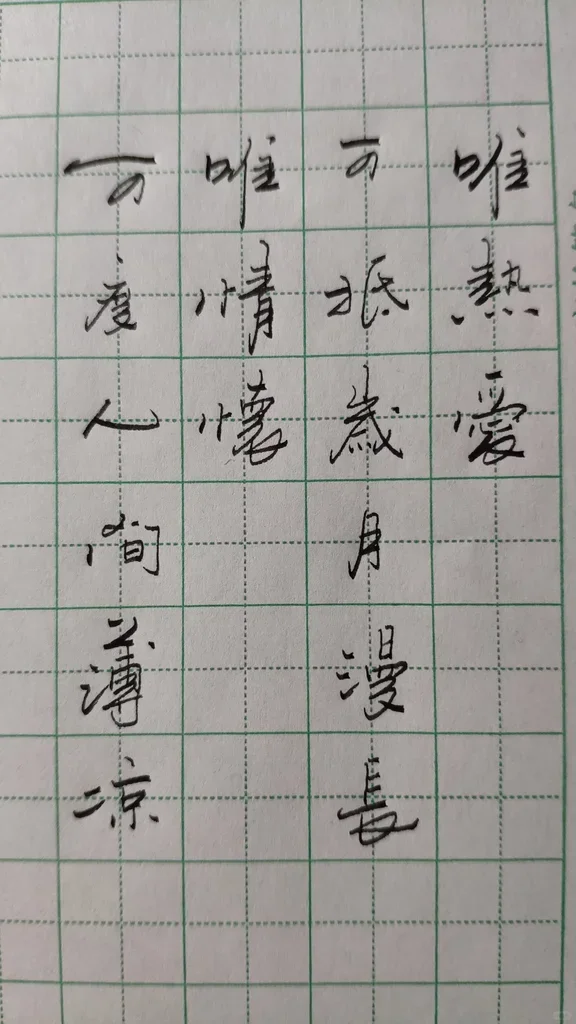 唯熱愛
可抵歲月漫長
唯情懷
可度人間薄涼